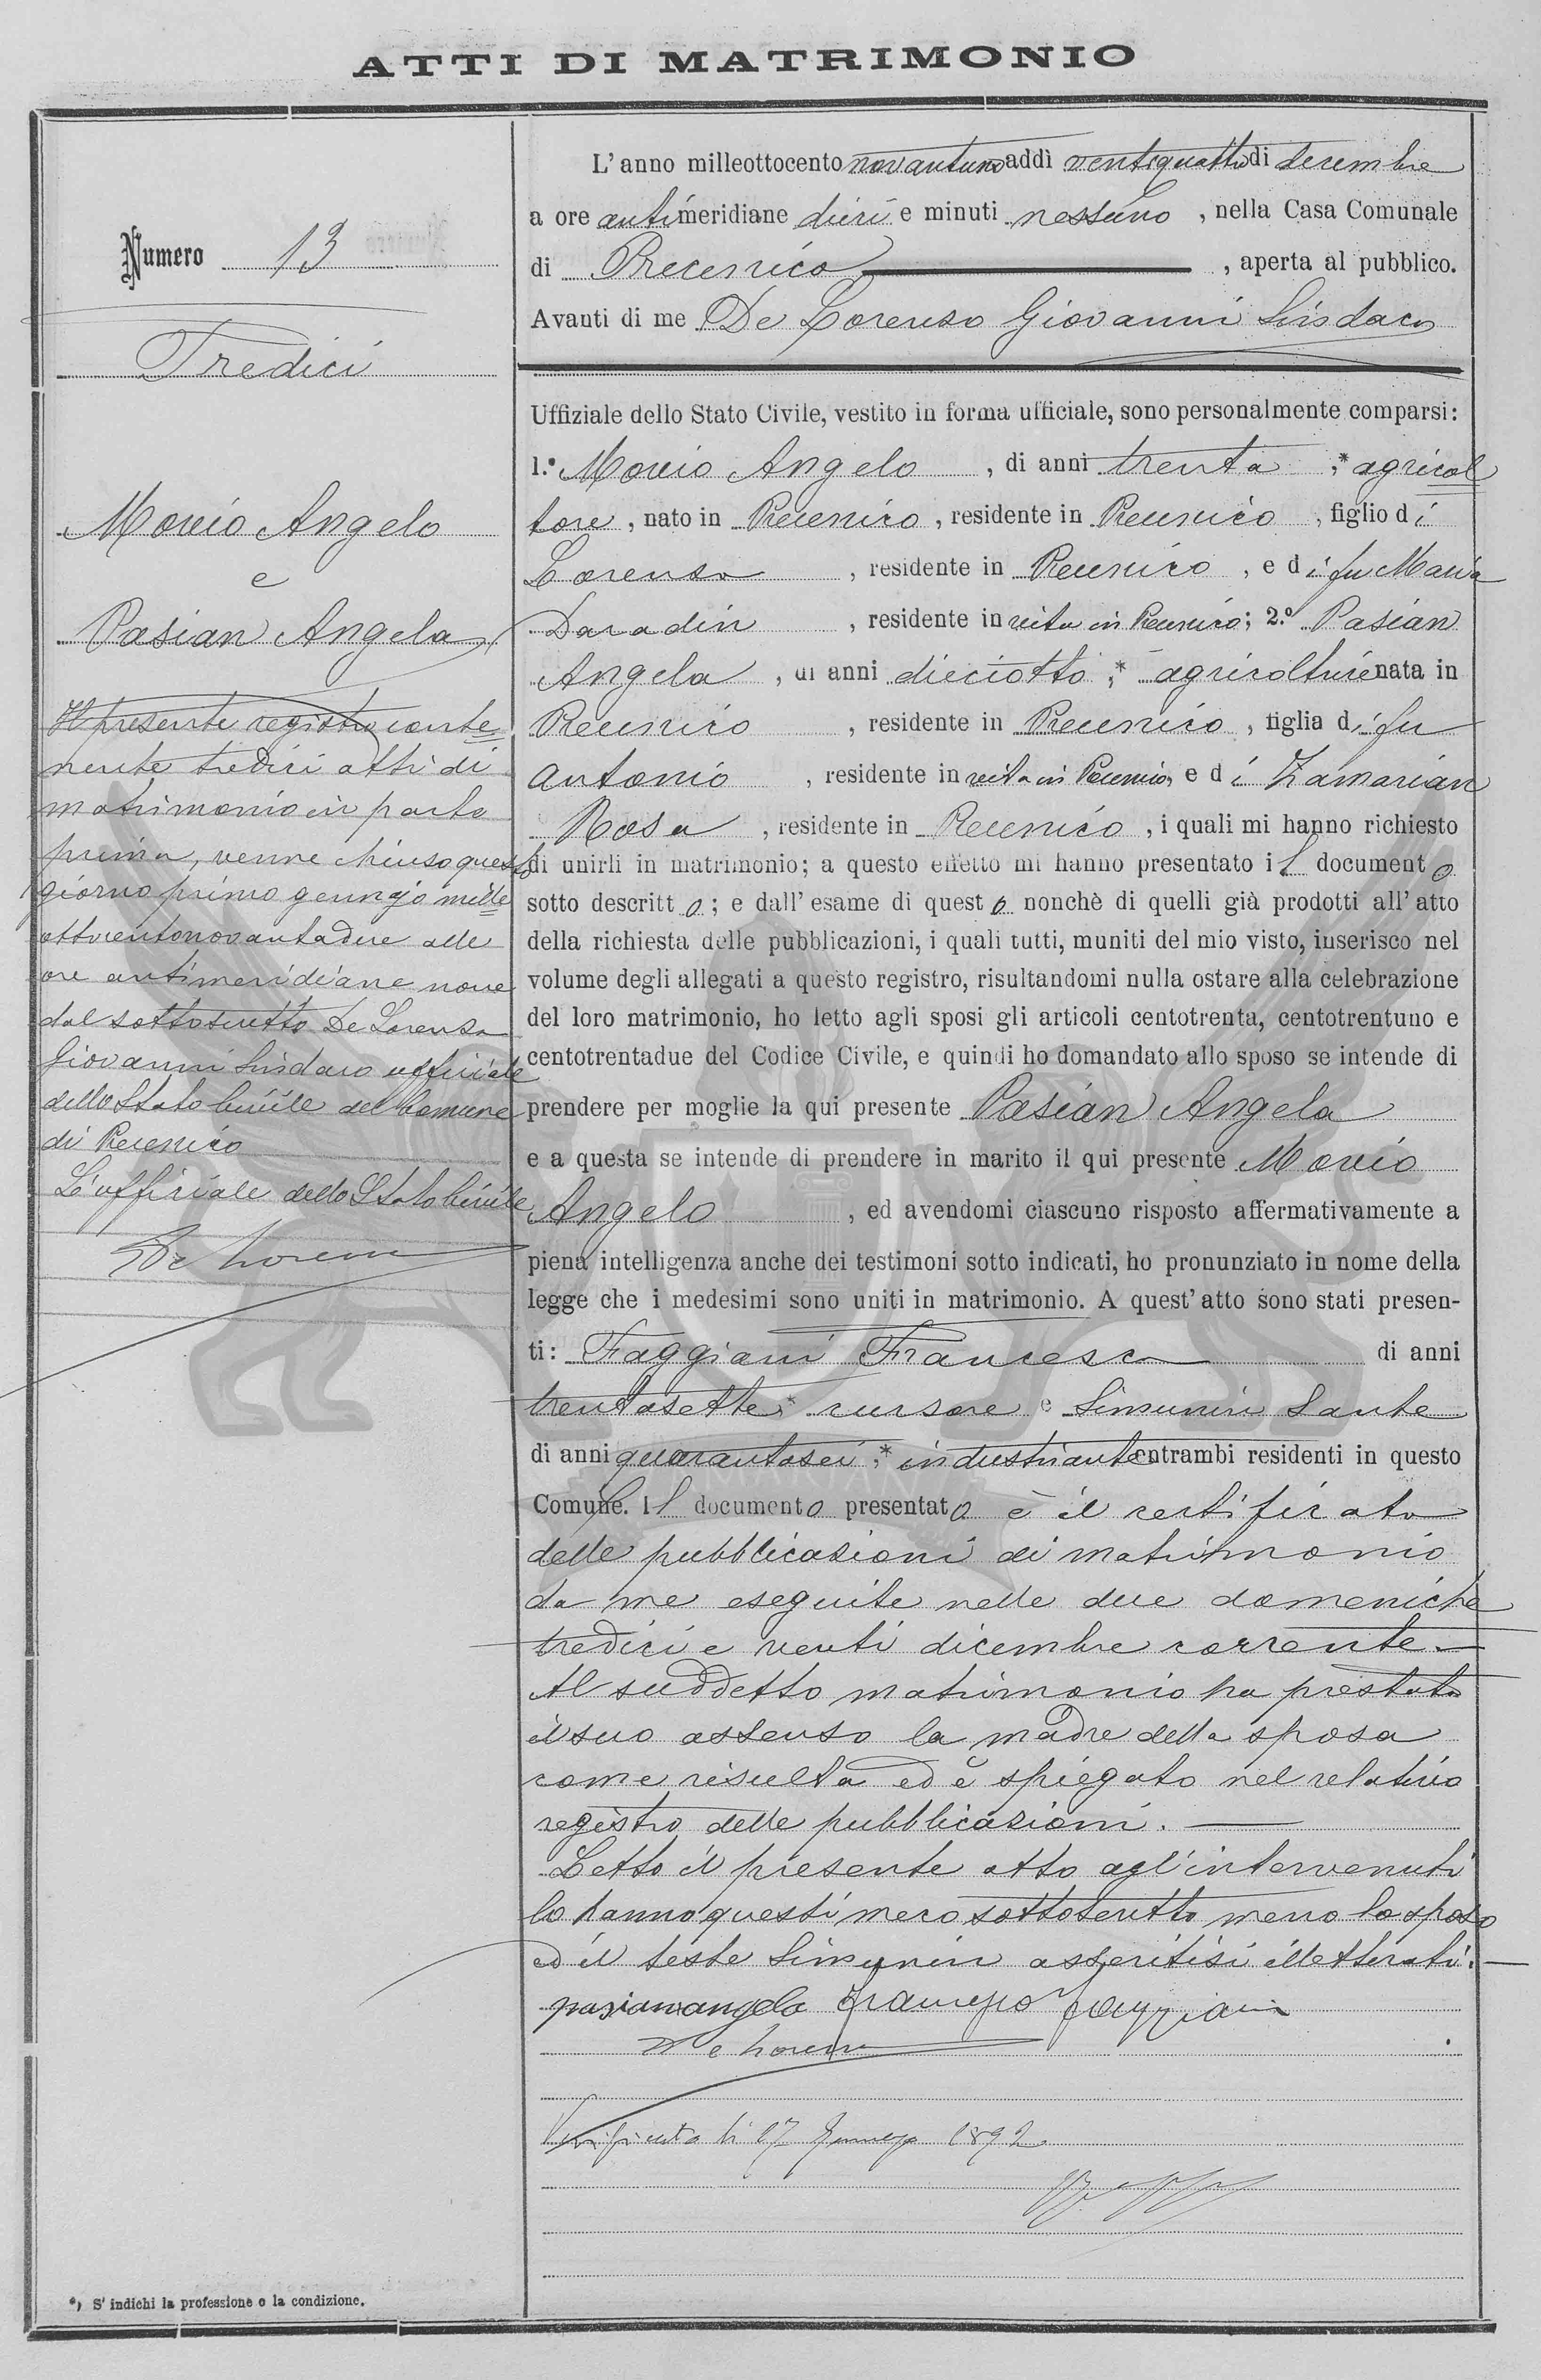 ATTI DI MATRIMONIO
Numero 13
Tredici
Movio Angelo
e
Pasian Angela
Il presente registro conte
nente tredici atti di
matrimonio in parte
prima, venne chiuso questo
giorno primo gennajo mille
ottocentonovantadue alle
ore antimeridiane nove
dal sottoscritto De Lorenzo
Giovanni Sindaco ufficiale
dello Stato Civile del Comune
di Precenico
L'ufficiale dello Stato Civile
De Lorenzo
L'anno milleottocento novantuno addì ventiquattro di decembre
a ore antimeridiane dieci e minuti nessuno, nella Casa Comunale
di Precenico, aperta al pubblico.
Avanti di me De Lorenzo Giovanni Sindaco
Uffiziale dello Stato Civile, vestito in forma ufficiale, sono personalmente comparsi:
1.° Movio Angelo, di anni trenta,* agricol
tore, nato in Precenico, residente in Precenico, figlio di
Lorenzo, residente in Precenico, e di fu Maria
Daradin, residente in vita in Precenico; 2.° Pasian
Angela, di anni dieciotto,* agricoltrice nata in
Precenico, residente in Precenico, figlia di fu
Antonio, residente in vita in Precenico, e di Zamarian
Rosa, residente in Precenico, i quali mi hanno richiesto
di unirli in matrimonio; a questo effetto mi hanno presentato il documento
sotto descritto; e dall'esame di questo nonchè di quelli già prodotti all'atto
della richiesta delle pubblicazioni, i quali tutti, muniti del mio visto, inserisco nel
volume degli allegati a questo registro, risultandomi nulla ostare alla celebrazione
del loro matrimonio, ho letto agli sposi gli articoli centotrenta, centotrentuno e
centotrentadue del Codice Civile, e quindi ho domandato allo sposo se intende di
prendere per moglie la qui presente Pasian Angela
e a questa se intende di prendere in marito il qui presente Movio
Angelo, ed avendomi ciascuno risposto affermativamente a
piena intelligenza anche dei testimoni sotto indicati, ho pronunziato in nome della
legge che i medesimi sono uniti in matrimonio. A quest'atto sono stati presen-
ti: Faggiani Francesco di anni
trentasette,* cursore e Simunin Sante
di anni quarantasei,* industriante entrambi residenti in questo
Comune. Il documento presentato è il certificato
delle pubblicazioni di matrimonio
da me eseguite nelle due domeniche
tredici e venti dicembre corrente.
Al suddetto matrimonio ha prestato
il suo assenso la madre della sposa
come risulta ed è spiegato nel relativo
registro delle pubblicazioni.
Letto il presente atto agl'intervenuti
lo hanno questi meco sottoscritto meno lo sposo
ed il teste Simunin asseritisi illetterati.
pasian angela Francesco Faggiani
De Lorenzo
Verificato li 17 Gennajo 1892
*) S'indichi la professione o la condizione.